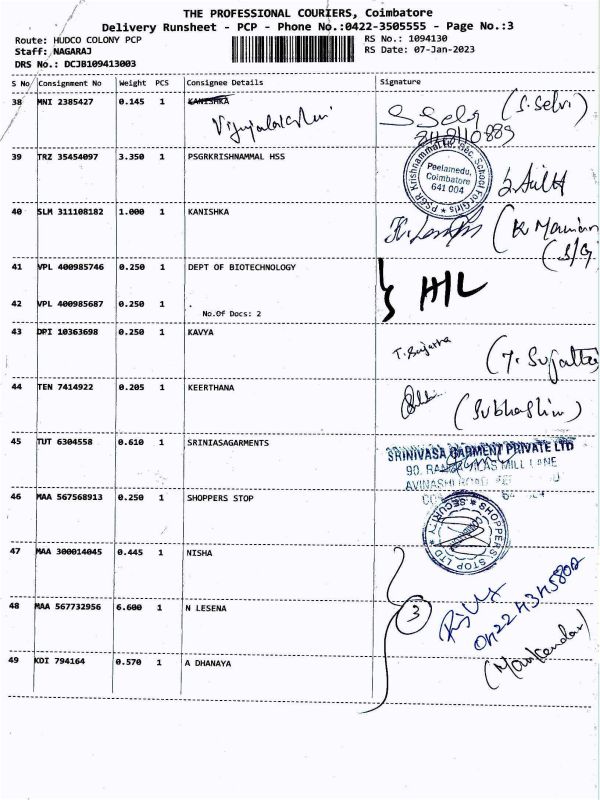 THE PROFESSIONAL COURIERS, Coimbatore
Delivery Runsheet - PCP - Phone No.:0422-3505555 - Page No.:3
Route: HUDCO COLONY PCP RS No.: 1094130
Staff: NAGARAJ RS Date: 07-Jan-2023
DRS No.: DCJB109413003
S No Consignment No Weight PCS Consignee Details Signature
38 MNI 2385427 0.145 1 KANISHKA (S.Selvi)
39 TRZ 35454097 3.350 1 PSGRKRISHNAMMAL HSS
PSGR Krishnammal Hr. Sec. School For Girls
Peelamedu,
Coimbatore
641 004
40 SLM 311108182 1.000 1 KANISHKA
41 VPL 400985746 0.250 1 DEPT OF BIOTECHNOLOGY
42 VPL 400985687 0.250 1 .
No.Of Docs: 2
43 DPI 10363698 0.250 1 KAVYA
T. Sujatha
44 TEN 7414922 0.205 1 KEERTHANA
(Subhashini)
45 TUT 6304558 0.610 1 SRINIASAGARMENTS
SRINIVASA GARMENT PRIVATE LTD
90, MILL LANE
AVINASHI ROAD
46 MAA 567568913 0.250 1 SHOPPERS STOP
SHOPPERS STOP LTD * SECURITY *
47 MAA 300014045 0.445 1 NISHA
48 MAA 567732956 6.600 1 N LESENA
3
49 KDI 794164 0.570 1 A DHANAYA